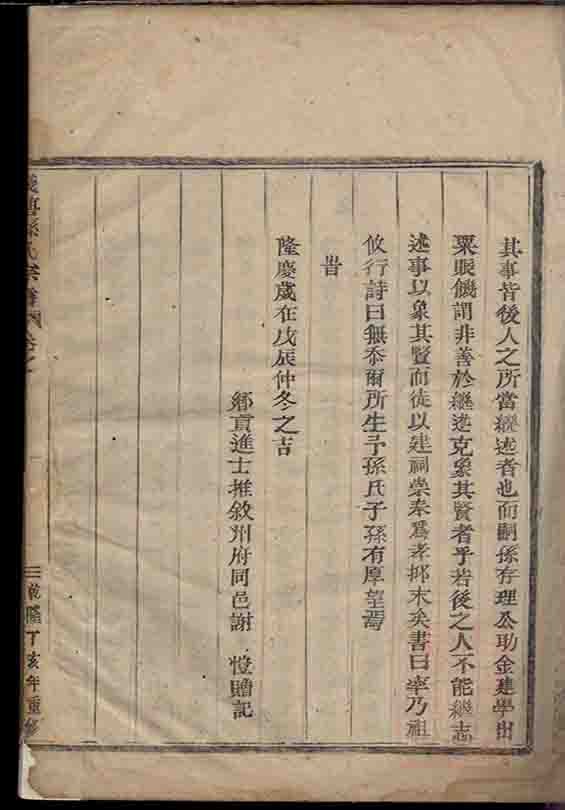 其事皆後人之所當繼述者也而嗣孫存理公助金建學出
粟賑饑謂非善於繼述克象其賢者乎若後之人不能繼志
述事以象其賢而徒以建祠崇奉爲孝抑末矣書曰率乃祖
攸行詩曰無忝爾所生予孫氏子孫有厚望焉
旹
隆慶歲在戊辰仲冬之吉
鄉貢進士推敘州府同邑謝 愷贈記
孫氏宗譜
乾隆丁亥年重修